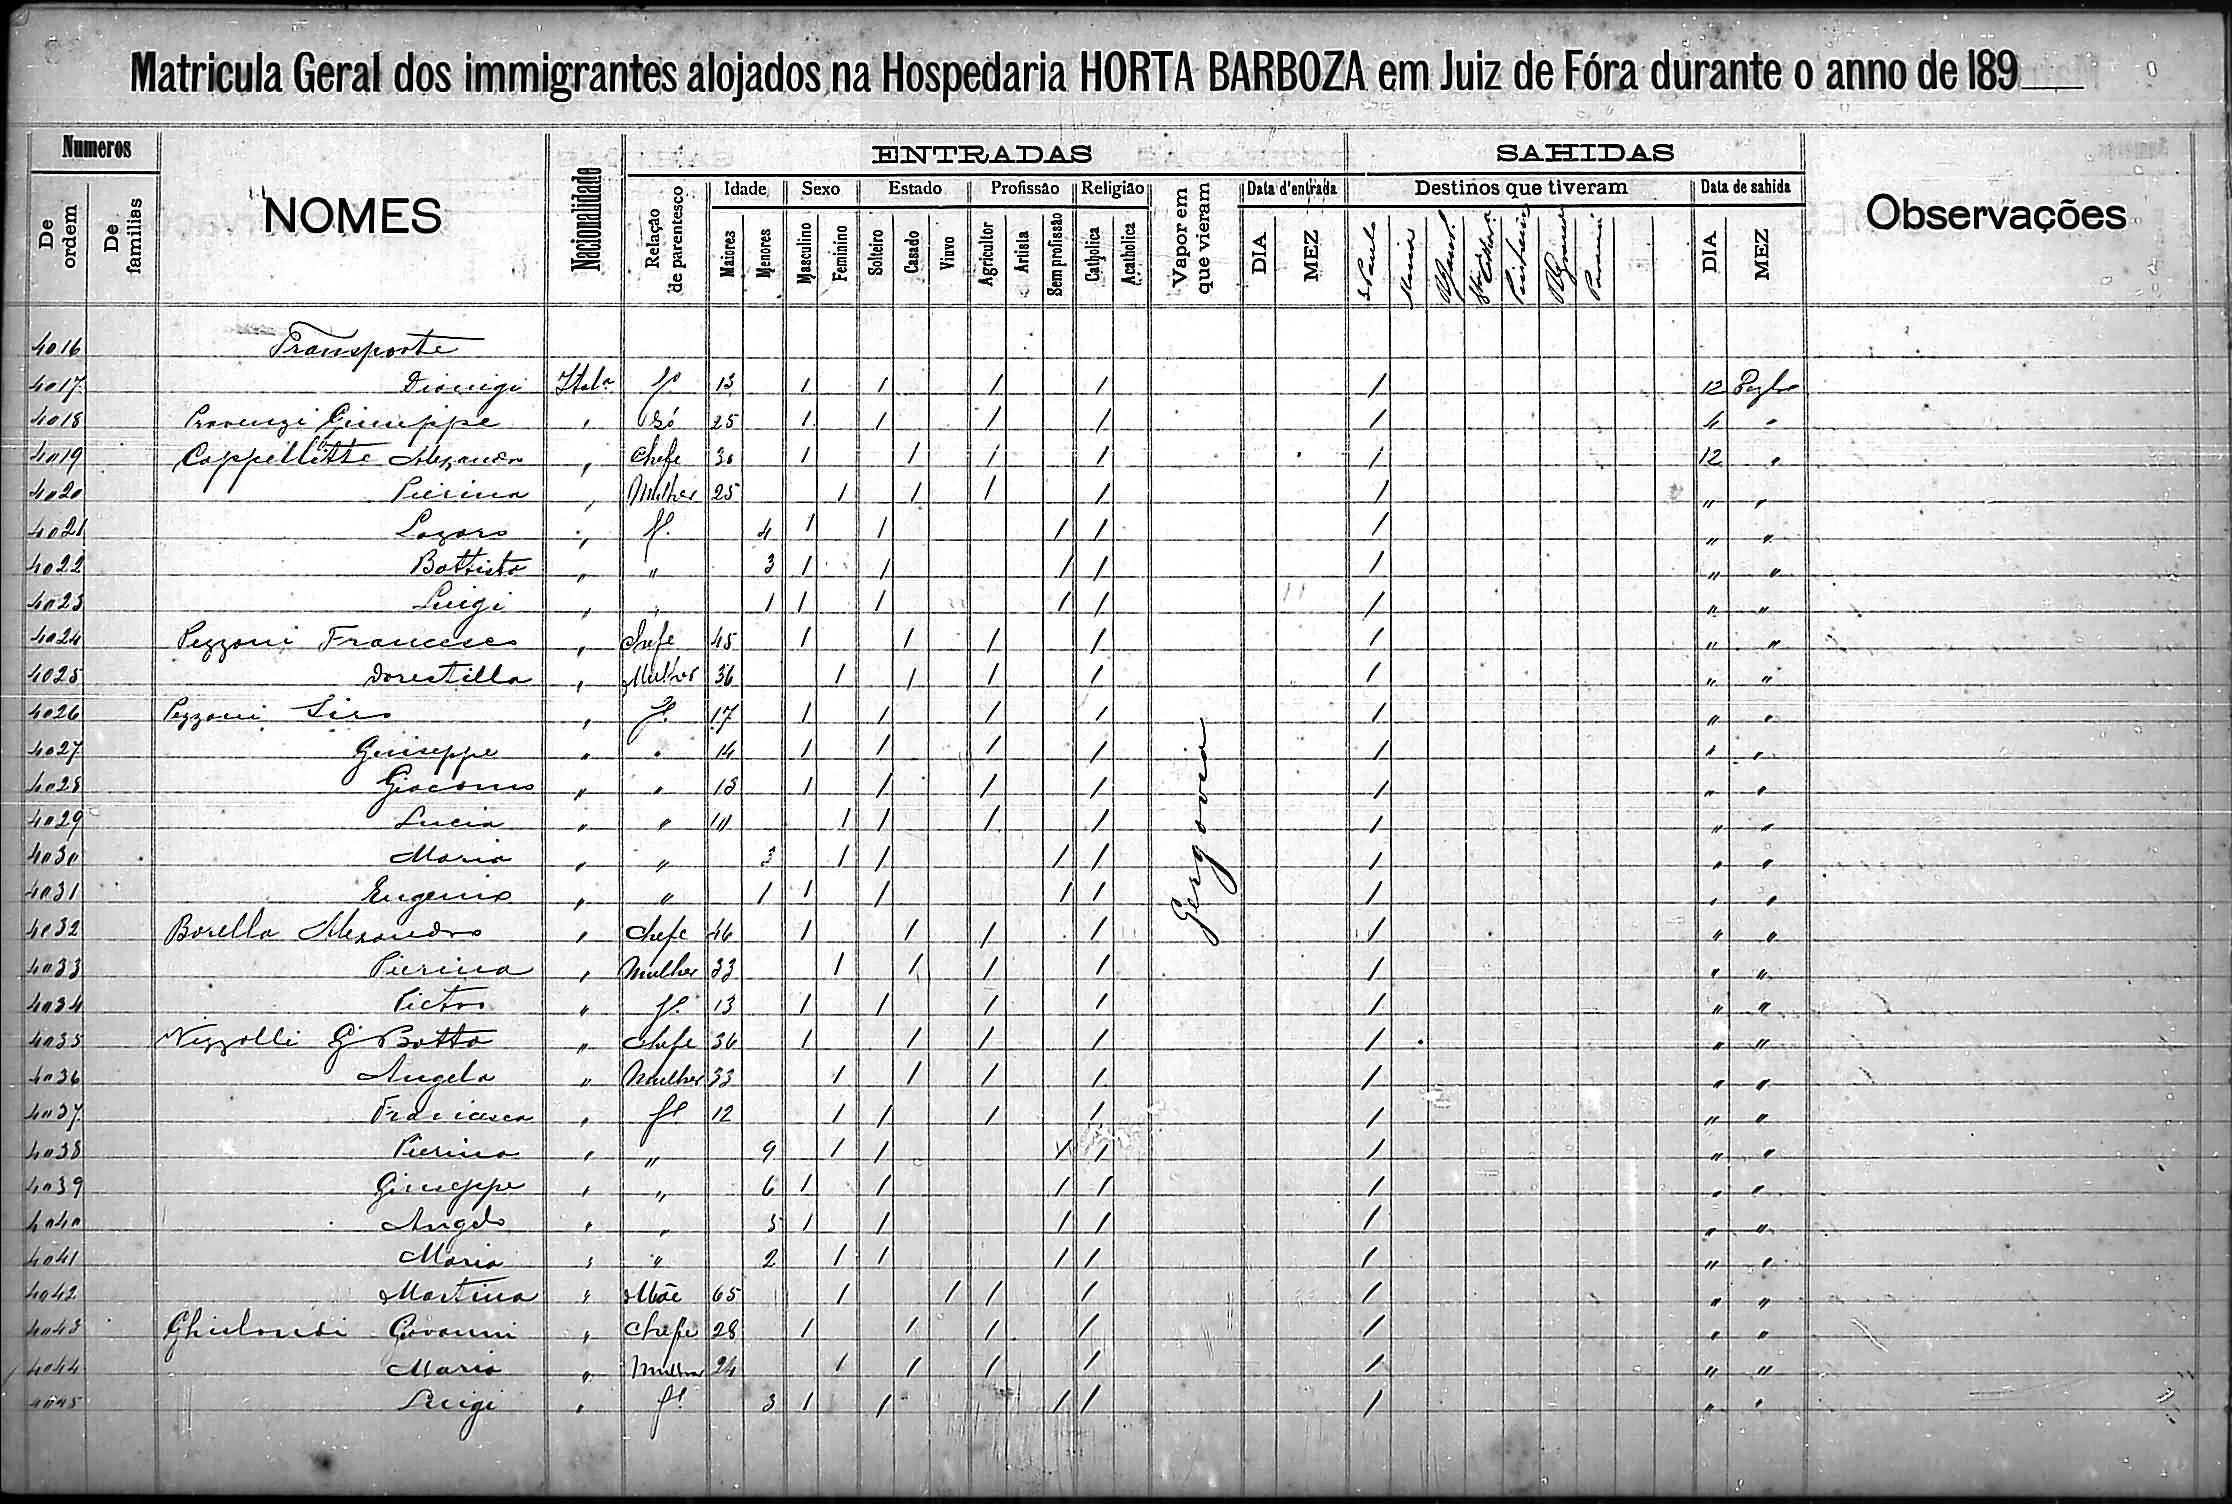 Matricula Geral dos immigrantes alojados na Hospedaria HORTA BARBOZA em Juiz de Fóra durante o anno de 189
Numeros
ENTRADAS
SAHIDAS
De ordem
De familias
NOMES
Nacionalidade
Relação de parentesco
Idade
Maiores
Menores
Sexo
Masculino
Feminino
Estado
Solteiro
Casado
Viuvo
Profissão
Agricultor
Artista
Sem profissão
Religião
Catholica
Acatholica
Vapor em que vieram
Data d'entrada
DIA
MEZ
Destinos que tiveram
S Paulo
Minas
Data de sahida
DIA
MEZ
Observações
Gergovia
4016 Transporte
4017 Dionigi Itala fo 13 1 1 1 1 1 12
4018 Provenzi Giuseppe " Só 25 1 1 1 1 1 4 "
4019 Cappelletti Alexandro " Chefe 30 1 1 1 1 1 12 "
4020 Pierina " Mulher 25 1 1 1 1 1 " "
4021 Lazaro " fo 4 1 1 1 1 1 " "
4022 Battista " " 3 1 1 1 1 1 " "
4023 Luigi " " 1 1 1 1 1 1 " "
4024 Pezzoni Francesco " Chefe 45 1 1 1 1 1 " "
4025 Dorestilla " Mulher 36 1 1 1 1 1 " "
4026 Pezzoni Siro " fo 17 1 1 1 1 1 " "
4027 Giuseppe " " 14 1 1 1 1 1 " "
4028 Giacomo " " 13 1 1 1 1 1 " "
4029 Lucia " " 1 1 1 1 1 " "
4030 Maria " " 3 1 1 1 1 1 " "
4031 Eugenio " " 1 1 1 1 1 1 " "
4032 Borella Alexandro " Chefe 46 1 1 1 1 1 " "
4033 Pierina " Mulher 33 1 1 1 1 1 " "
4034 Pietro " fo 13 1 1 1 1 1 " "
4035 Nizzolli G Batta " Chefe 36 1 1 1 1 1 " "
4036 Angela " Mulher 33 1 1 1 1 1 " "
4037 Francesca " fo 12 1 1 1 1 1 " "
4038 Pierina " " 9 1 1 1 1 1 " "
4039 Giuseppe " " 6 1 1 1 1 1 " "
4040 Angelo " " 5 1 1 1 1 1 " "
4041 Maria " " 2 1 1 1 1 1 " "
4042 Martina " Mãe 65 1 1 1 1 1 " "
4043 Ghislandi Giovanni " Chefe 28 1 1 1 1 1 " "
4044 Maria " Mulher 24 1 1 1 1 1 " "
4045 Luigi " fo 3 1 1 1 1 1 " "